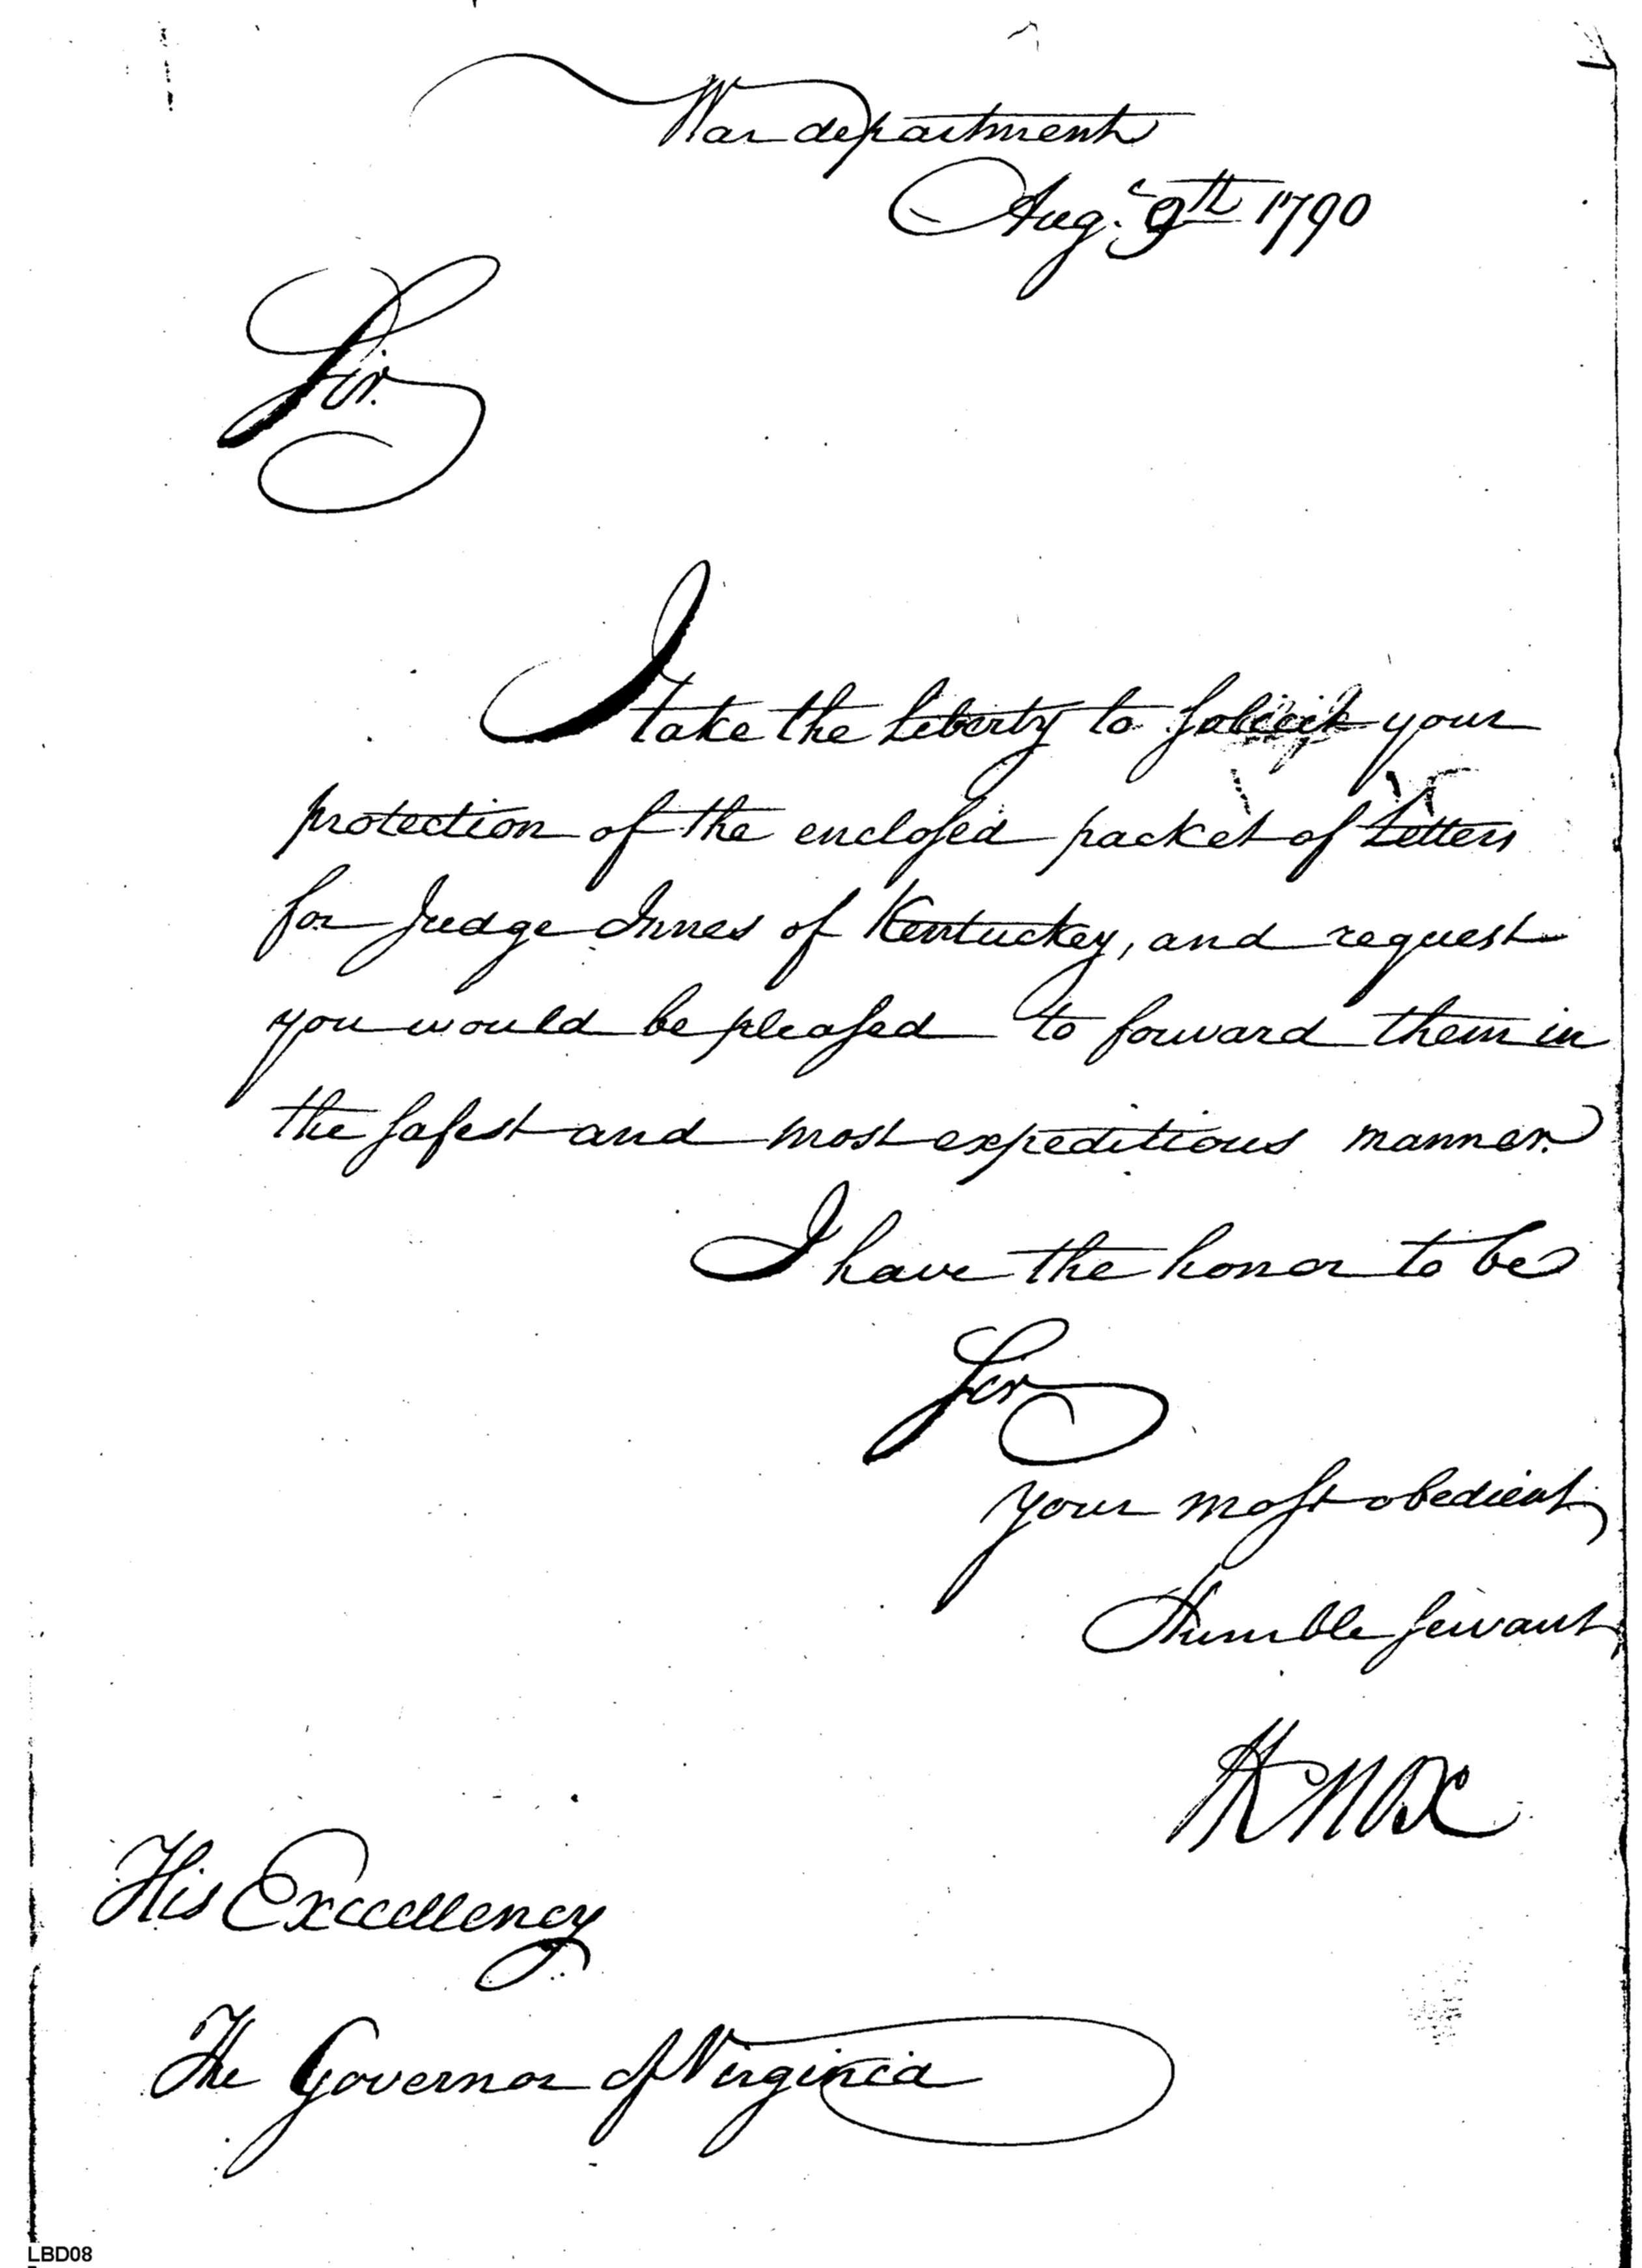 War department
Aug. 9th 1790
Sir.
I take the Liberty to solicit your
protection of the enclosed packet of Letters
for Judge Innes of Kentucky, and request
you would be pleased to forward them in
the safest and most expeditious manner.
I have the honor to be
Sir
your most obedient
Humble servant
HKnox
His Excellency
The Governor of Virginia
LBD08